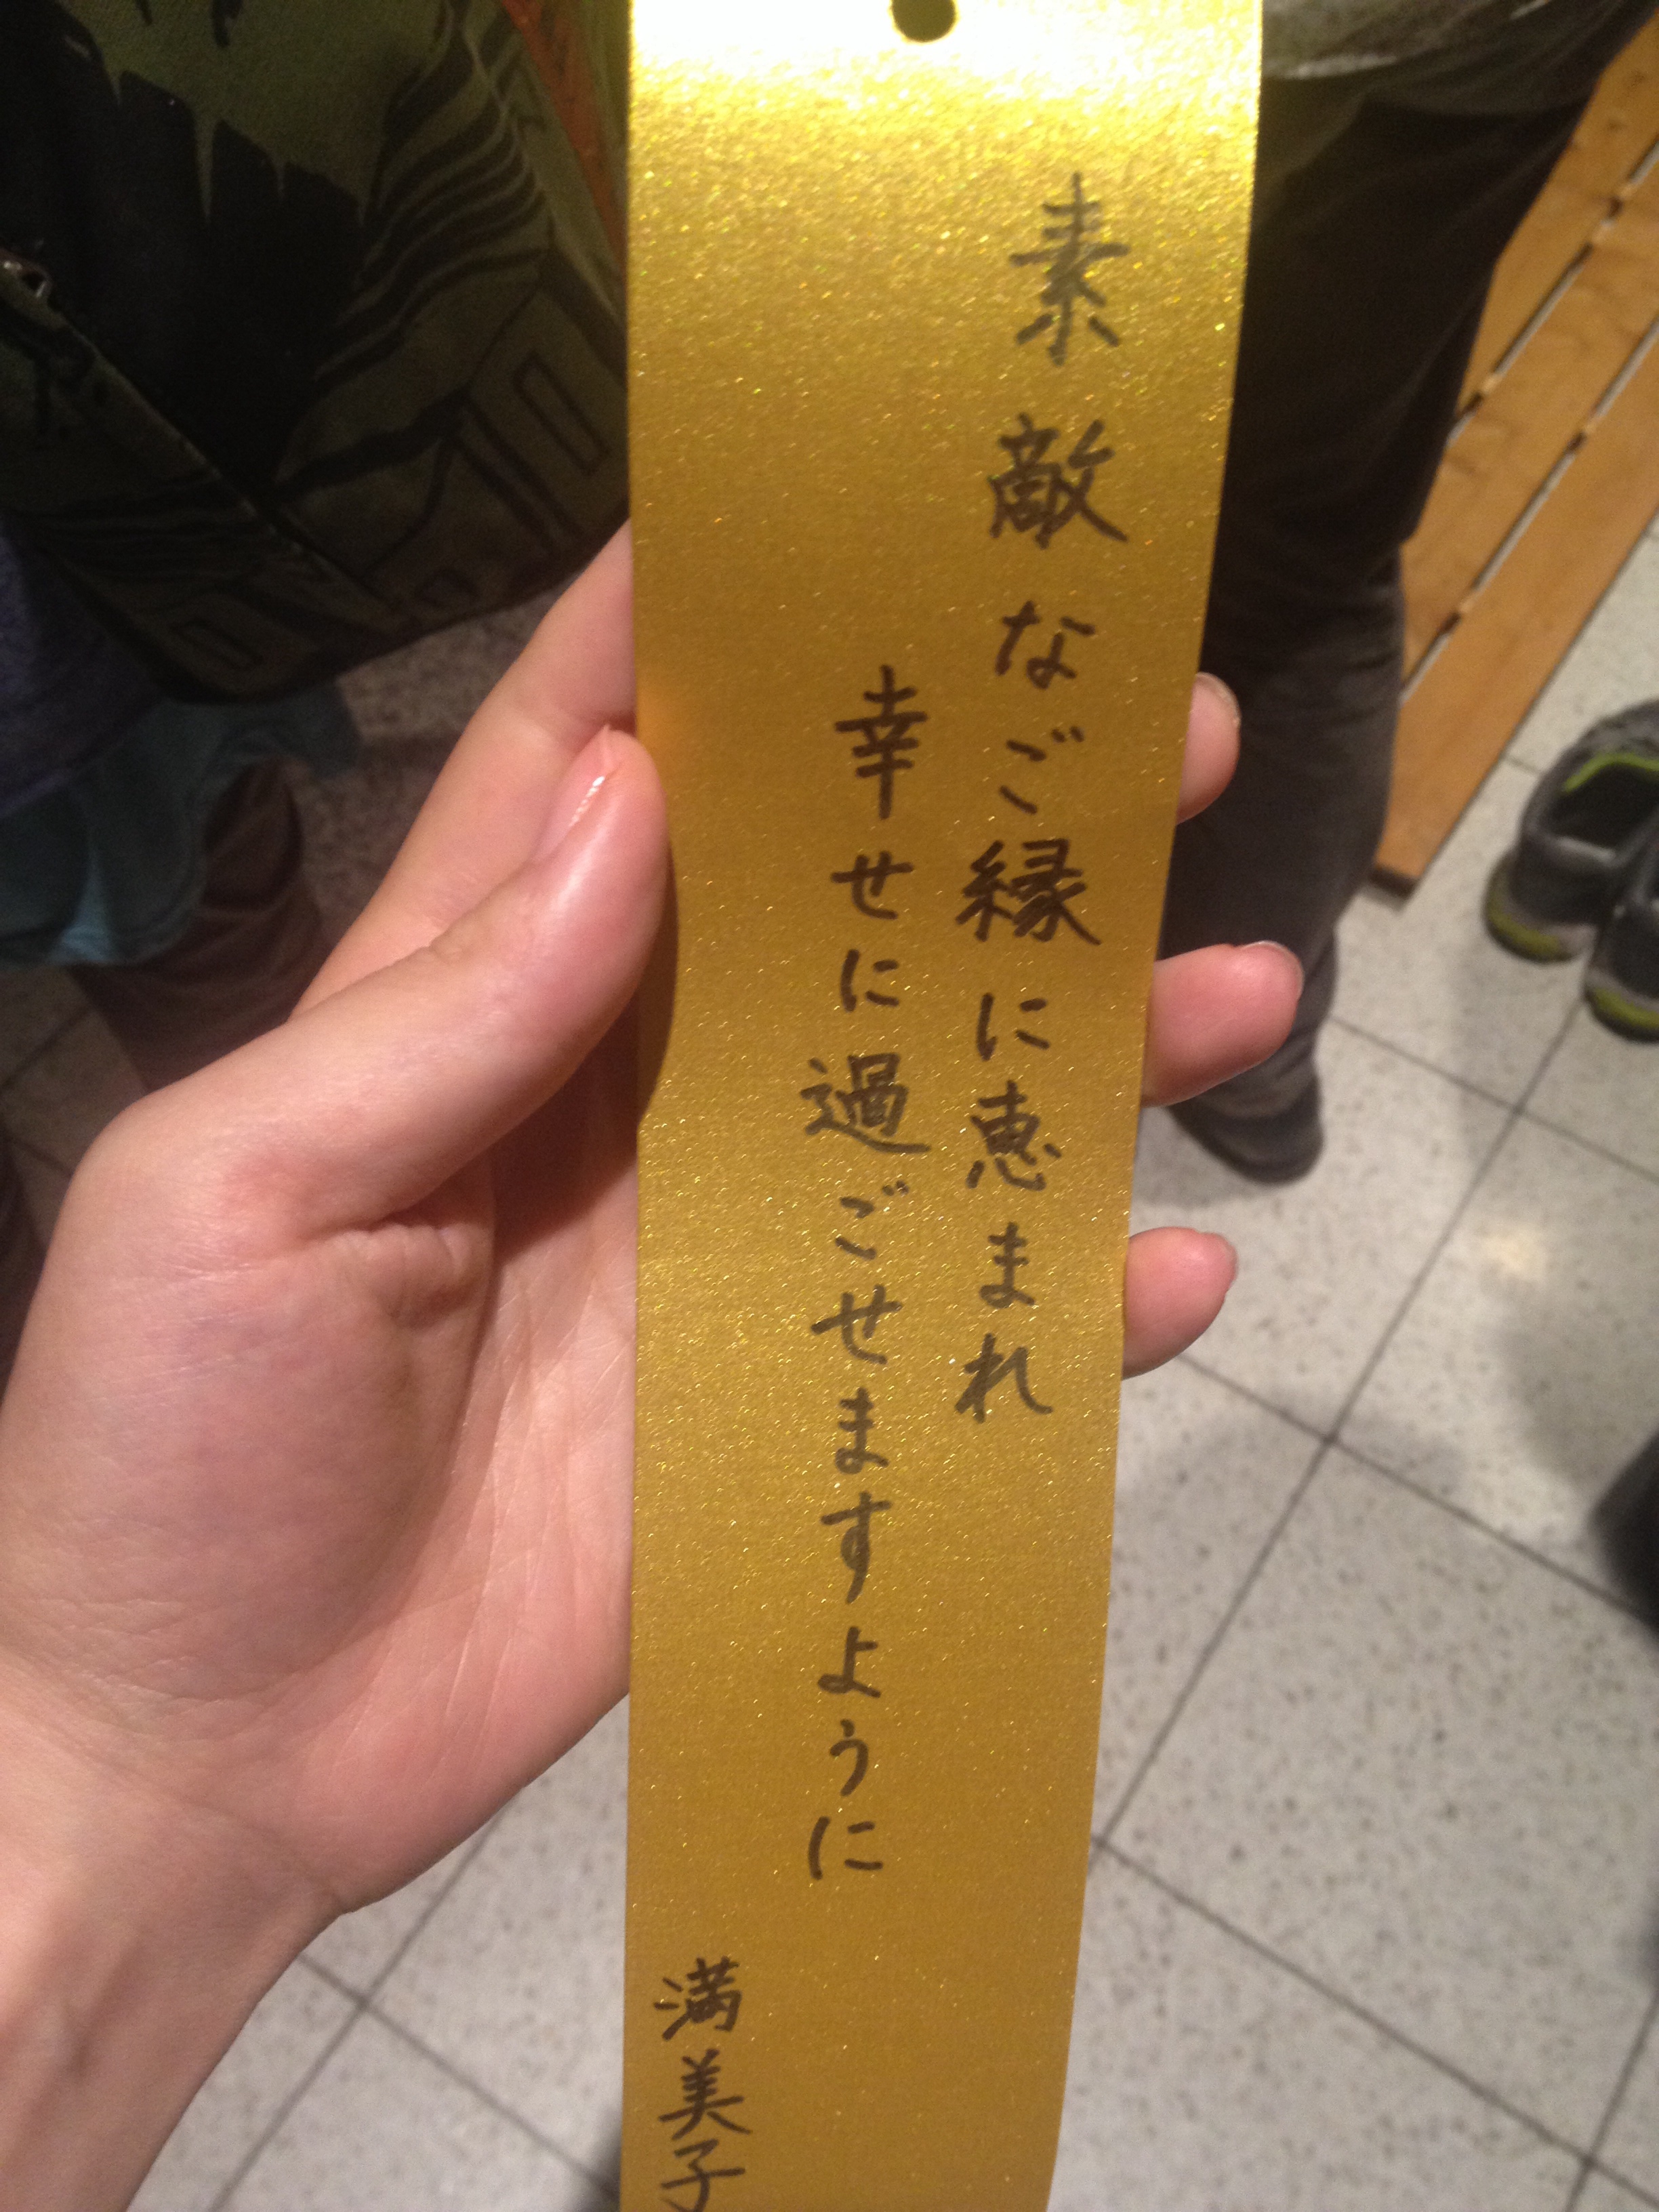 素敵なご縁に恵まれ
幸せに過ごせますように
満美子